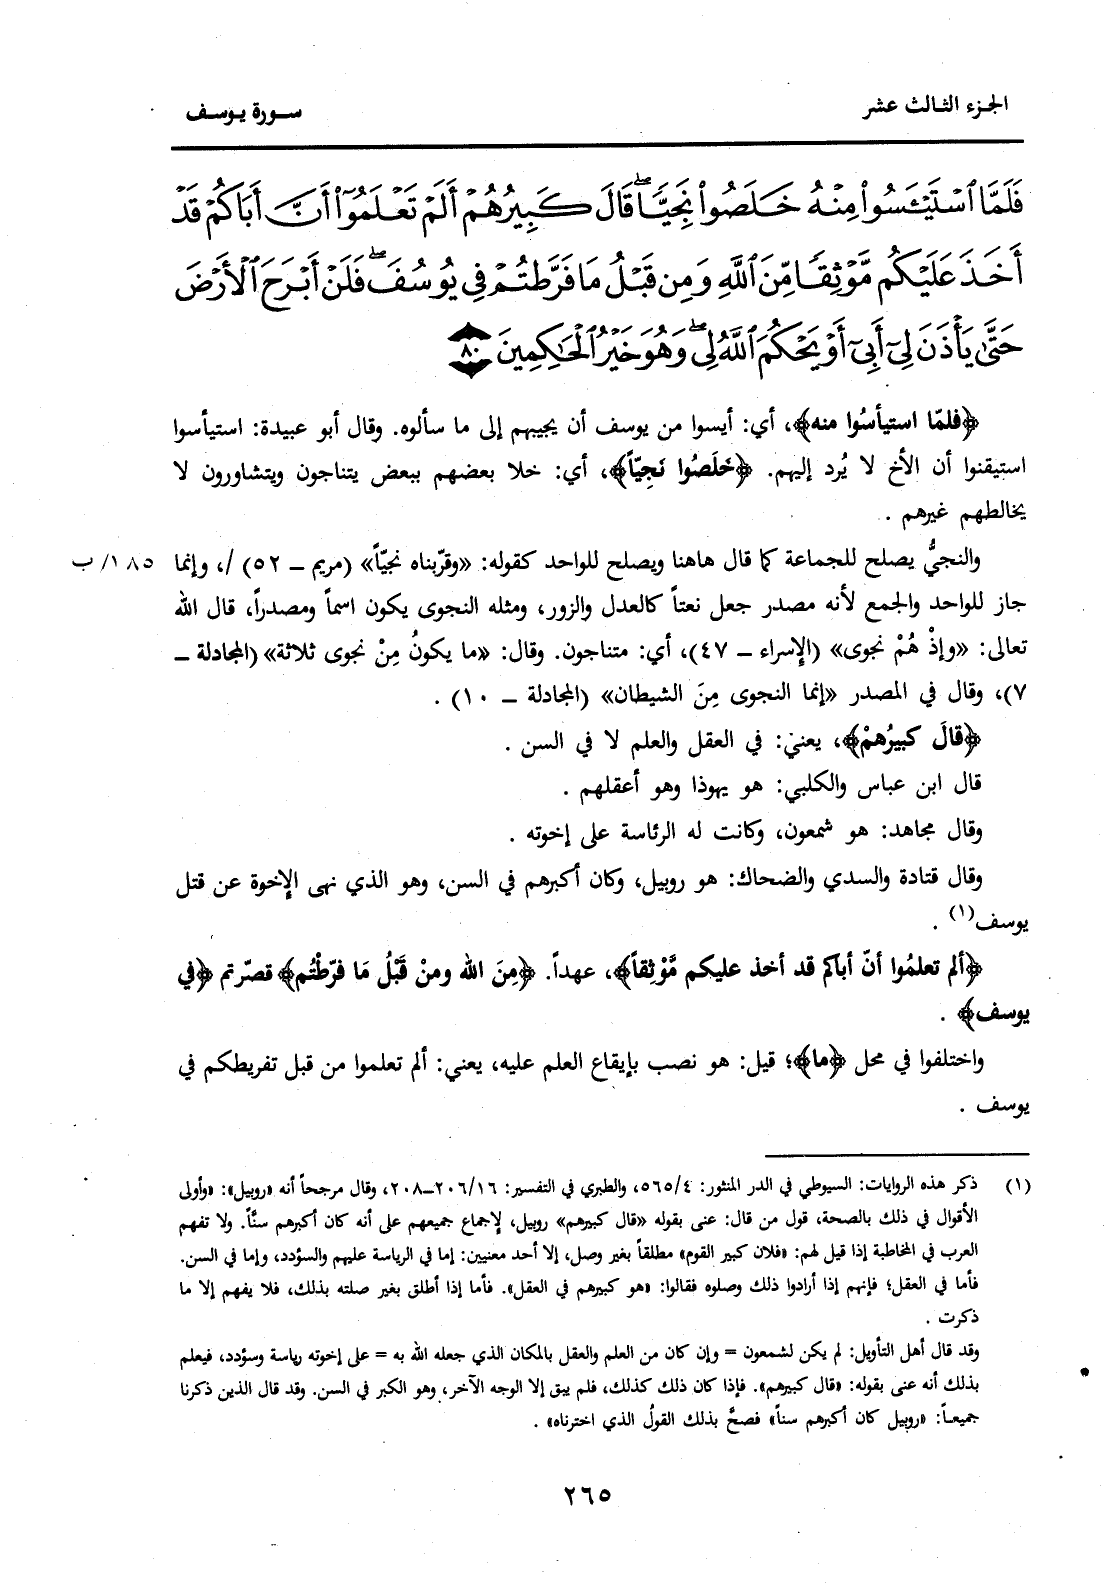 الجزء الثالث عشر
سورة يوسف
فَلَمَّا ٱسْتَيْـَٔسُوا۟ مِنْهُ خَلَصُوا۟ نَجِيًّا ۖ قَالَ كَبِيرُهُمْ أَلَمْ تَعْلَمُوٓا۟ أَنَّ أَبَاكُمْ قَدْ
أَخَذَ عَلَيْكُم مَّوْثِقًا مِّنَ ٱللَّهِ وَمِن قَبْلُ مَا فَرَّطتُمْ فِى يُوسُفَ ۖ فَلَنْ أَبْرَحَ ٱلْأَرْضَ
حَتَّىٰ يَأْذَنَ لِىٓ أَبِىٓ أَوْ يَحْكُمَ ٱللَّهُ لِى ۖ وَهُوَ خَيْرُ ٱلْحَـٰكِمِينَ ٨٠
﴿فلمّا استيأسُوا منه﴾، أي: أيسوا من يوسف أن يجيبهم إلى ما سألوه. وقال أبو عبيدة: استيأسوا
استيقنوا أن الأخ لا يُرد إليهم. ﴿خَلَصُوا نَجِيّاً﴾، أي: خلا بعضهم ببعض يتناجون ويتشاورون لا
يخالطهم غيرهم .
والنجيُّ يصلح للجماعة كما قال هاهنا ويصلح للواحد كقوله: «وقرّبناه نجيّاً» (مريم ــ ٥٢) /، وإنما ١٨٥/ب
جاز للواحد والجمع لأنه مصدر جعل نعتاً كالعدل والزور، ومثله النجوى يكون اسماً ومصدراً، قال الله
تعالى: «وإذْ هُمْ نجوى» (الإسراء ــ ٤٧)، أي: متناجون. وقال: «ما يكونُ مِنْ نجوى ثلاثة» (المجادلة ــ
٧)، وقال في المصدر «إنما النجوى مِنَ الشيطان» (المجادلة ــ ١٠) .
﴿قالَ كبيرُهمْ﴾، يعني: في العقل والعلم لا في السن .
قال ابن عباس والكلبي: هو يهوذا وهو أعقلهم .
وقال مجاهد: هو شمعون، وكانت له الرئاسة على إخوته .
وقال قتادة والسدي والضحاك: هو روبيل، وكان أكبرهم في السن، وهو الذي نهى الإخوة عن قتل
يوسف(١) .
﴿ألم تعلمُوا أنّ أباكم قد أخذ عليكم مَّوْثِقاً﴾، عهداً. ﴿مِنَ الله ومنْ قَبْلُ مَا فرّطْتُم﴾ قصّرتم ﴿في
يوسف﴾ .
واختلفوا في محل ﴿ما﴾؛ قيل: هو نصب بإيقاع العلم عليه، يعني: ألم تعلموا من قبل تفريطكم في
يوسف .
(١) ذكر هذه الروايات: السيوطي في الدر المنثور: ٥٦٥/٤، والطبري في التفسير: ٢٠٦/١٦ــ٢٠٨، وقال مرجحاً أنه «روبيل»: «وأولى
الأقوال في ذلك بالصحة، قول من قال: عنى بقوله «قال كبيرهم» روبيل، لإجماع جميعهم على أنه كان أكبرهم سنَّاً. ولا تفهم
العرب في المخاطبة إذا قيل لهم: «فلان كبير القوم» مطلقاً بغير وصل، إلا أحد معنيين: إما في الرياسة عليهم والسؤدد، وإما في السن.
فأما في العقل؛ فإنهم إذا أرادوا ذلك وصلوه فقالوا: «هو كبيرهم في العقل». فأما إذا أطلق بغير صلته بذلك، فلا يفهم إلا ما
ذكرت .
وقد قال أهل التأويل: لم يكن لشمعون = وإن كان من العلم والعقل بالمكان الذي جعله الله به = على إخوته رياسة وسؤدد، فيعلم
بذلك أنه عنى بقوله: «قال كبيرهم». فإذا كان ذلك كذلك، فلم يبق إلا الوجه الآخر، وهو الكبر في السن. وقد قال الذين ذكرنا
جميعـاً: «روبيل كان أكبرهم سناً» فصحَّ بذلك القولُ الذي اخترناه» .
٢٦٥